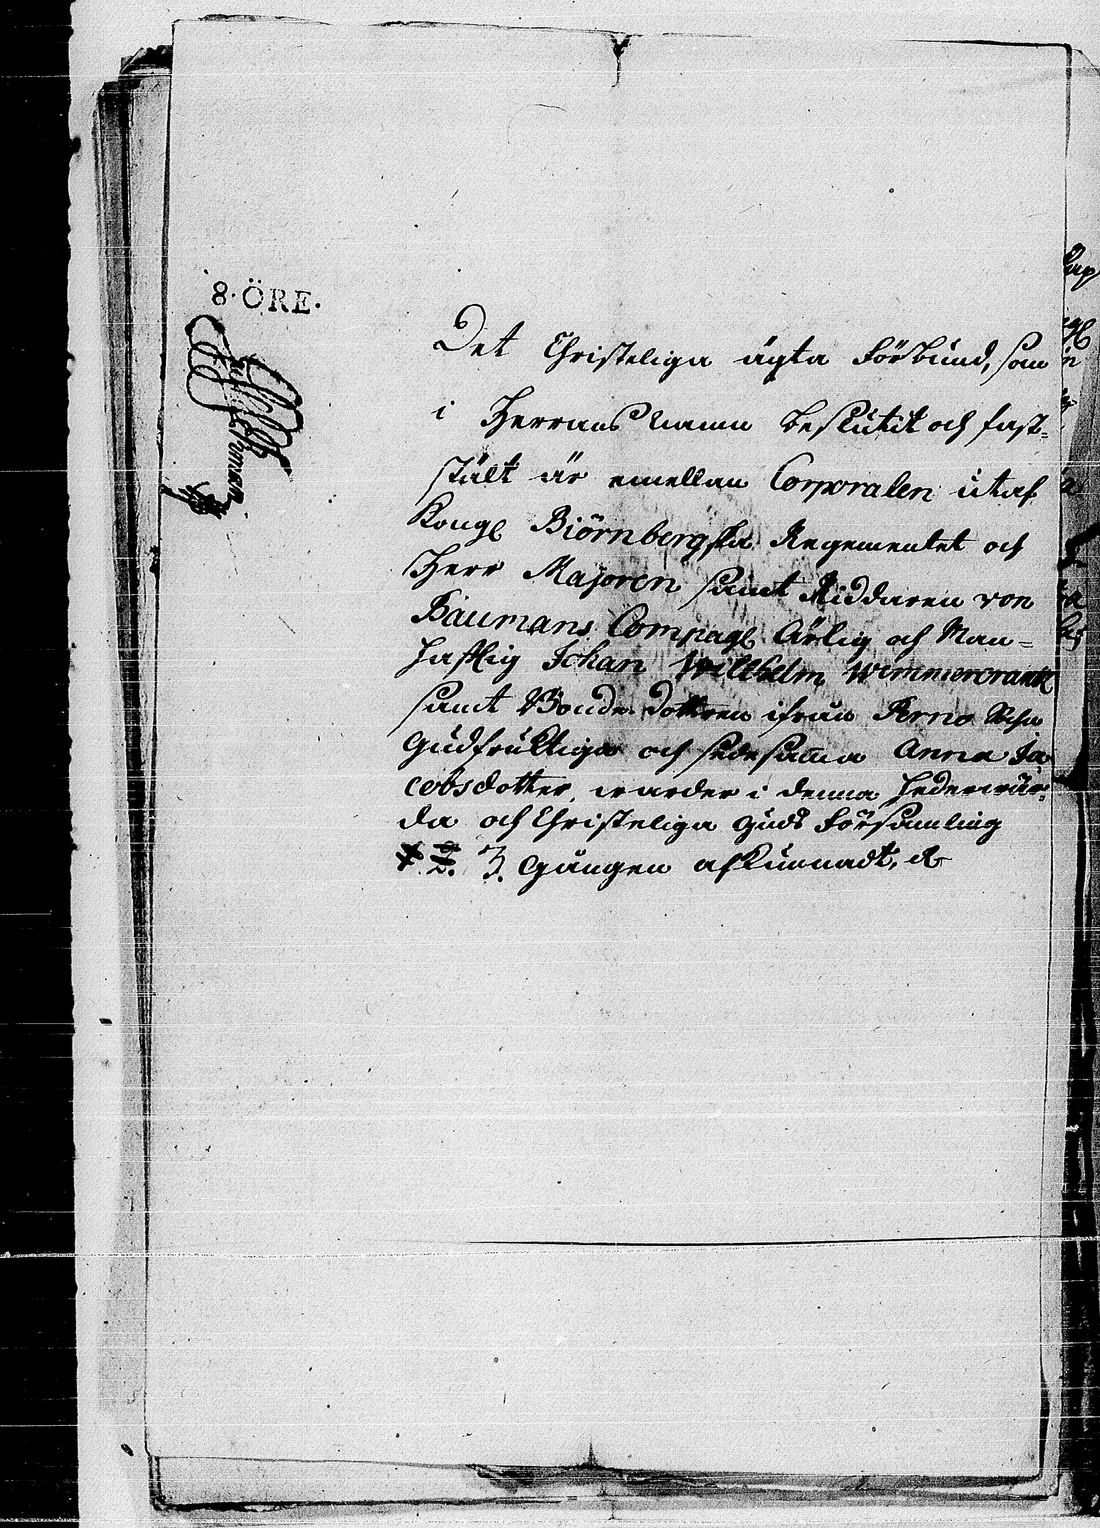 8·ÖRE·
Det Christeliga ägta Förbund, som
i Herrans Namn beslutit och fast-
stält är emellan Corporalen utaf
Kongl Biörnbergska Regementet och
Herr Majoren samt Riddaren von
Baumans Compagl Ärlig och Man-
haftig Johan Willhelm Wimmercrantz
samt Bonde dottren ifrån
Gudfruktiga och sedesamma Anna Ja
cobsdotter, warder i denna hederwär-
da och Christeliga Guds Församling
1 2. 3. gången afkunnadt, &